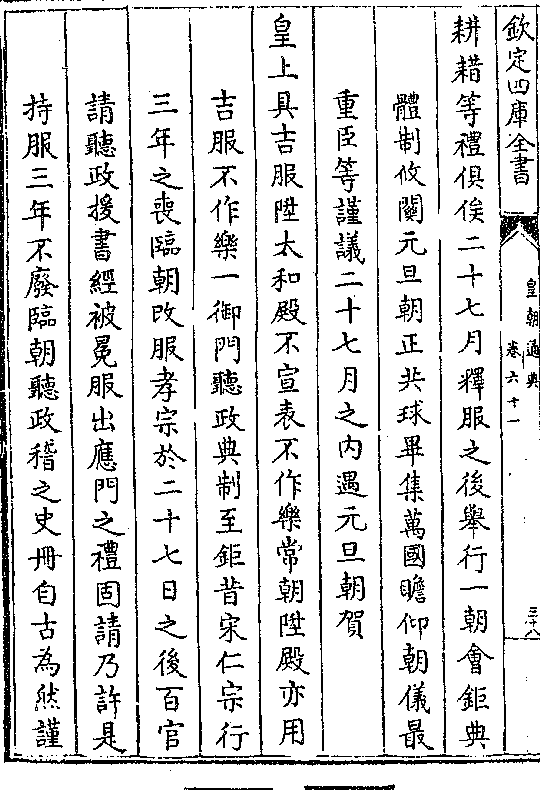 欽定四庫全書
皇朝通典
卷六十一
三十八
耕耤等禮俱俟二十七月釋服之後舉行一朝會鉅典
體制攸關元旦朝正共球畢集萬國瞻仰朝儀最
重臣等謹議二十七月之内遇元旦朝賀
皇上具吉服陞太和殿不宣表不作樂常朝陞殿亦用
吉服不作樂一御門聽政典制至鉅昔宋仁宗行
三年之喪臨朝改服孝宗於二十七日之後百官
請聽政援書經被冕服出應門之禮固請乃許是
持服三年不廢臨朝聽政稽之史冊自古為然謹